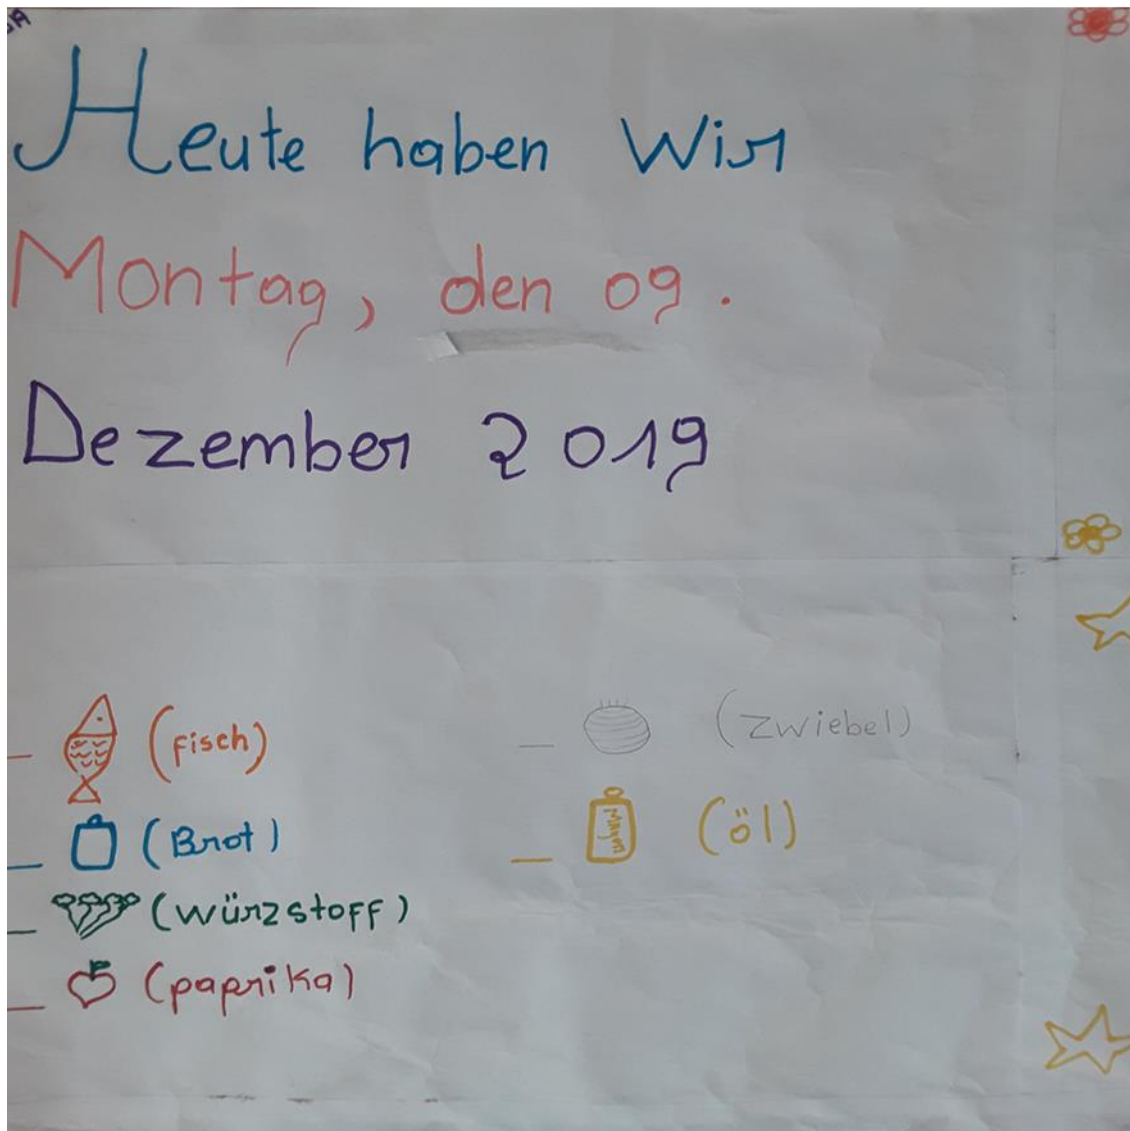 Heute haben Wir
Montag, den 09.
Dezember 2019
(fisch)
(Brot)
(würzstoff)
(paprika)
(zwiebel)
(öl)